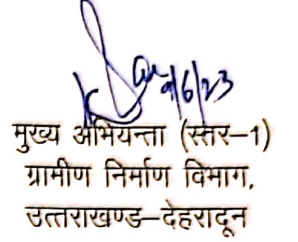 9/6/23
मुख्य अभियन्ता (स्तर–1)
ग्रामीण निर्माण विभाग,
उत्तराखण्ड–देहरादून